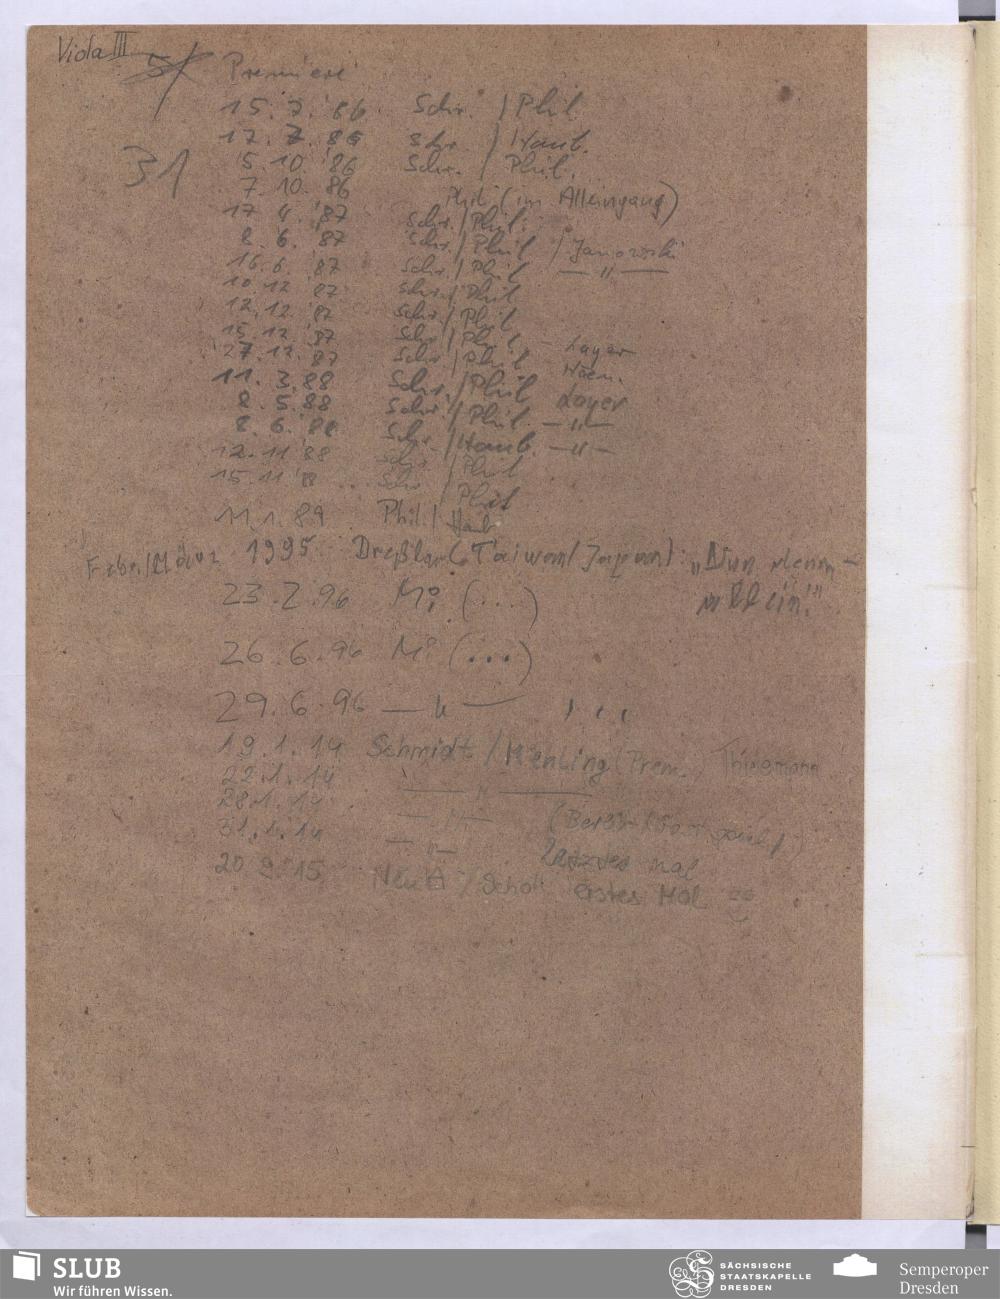 Viola III
Premiere
31
15. 7. '86 Schr. / Phil.
17. 7. 86 Schr. / Haub.
5. 10. '86 Schr. / Phil.
7. 10. '86 Phil (im Alleingang)
17 4. '87 Schr. / Phil.
8. 6. '87 Schr. / Phil / Janowski
16. 6. '87 Schr. / Phil — " —
10 12 '87 Schr. / Phil
12. 12. '87 Schr. / Phil
15. 12. '87 Schr / Phil - Layer
27. 12. '87 Schr / Phil
11. 3. 88 Schr. / Phil Layer
8. 5. 88 Schr. / Phil. — " —
8. 6. '88 Schr / Haub. — " —
12. 11 '88 Schr / Phil
15. 11 '8 Schr / Phil
11. 1. 89 Phil. / Haub
Febr./März 1995 (Taiwan/Japan): „Nun denn -
23. 2. 96 Mi (...)
26. 6. 96 Mi (...)
29. 6. 96 — " — , , ,
19. 1. 14 Schmidt / (Prem.) Thielemann
22. 1. 14 — " —
28. 1. 14 — " —
31. 1. 14 — " — letztes mal
20 9. '15 / Scholl erstes Mal
SLUB
Wir führen Wissen.
SÄCHSISCHE
STAATSKAPELLE
DRESDEN
Semperoper
Dresden